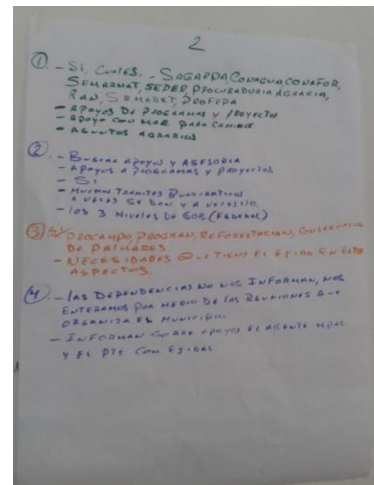 2
① - Si, Cuales. - SAGARPA, CONAGUA, CONAFOR,
SEMARNAT, SEDER, PROCURADURIA AGRARIA,
RAN, SEMADET, PROFEPA
- APOYOS DE PROGRAMAS Y PROYECTOS
- APOYO CON MAQ. PARA CAMINOS
- ASUNTOS AGRARIOS
② - BUSCAR APOYO Y ASESORIA
- APOYOS A PROGRAMAS Y PROYECTOS
- SI
- MUCHOS TRAMITES BUROCRATICOS
A VECES SE DAN Y A VECES NO.
- LOS 3 NIVELES DE GOB (FEDERAL)
③ SI PROCAMPO, PROGRAN, REFORESTACION, CONSERVACION
DE PALMARES.
- NECESIDADES QUE TIENE EL EJIDO EN ESTOS
ASPECTOS.
④ - LAS DEPENDENCIAS NO NOS INFORMAN, NOS
ENTERAMOS POR MEDIO DE LAS REUNIONES QUE
ORGANIZA EL MUNICIPIO.
- INFORMAN SOBRE APOYOS EL AGENTE MPAL
Y EL PTE COM. EJIDAL